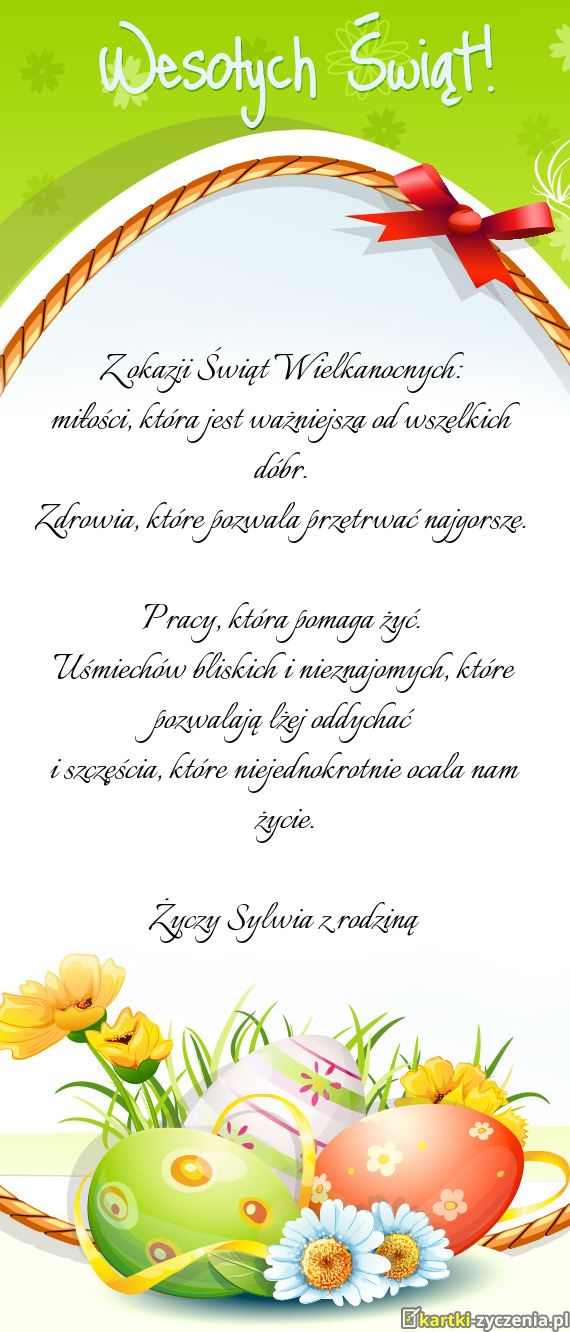 Wesołych Świąt!
Z okazji Świąt Wielkanocnych:
miłości, która jest ważniejsza od wszelkich
dóbr.
Zdrowia, które pozwala przetrwać najgorsze.
Pracy, która pomaga żyć.
Uśmiechów bliskich i nieznajomych, które
pozwalają lżej oddychać
i szczęścia, które niejednokrotnie ocala nam
życie.
Życzy Sylwia z rodziną
kartki-zyczenia.pl